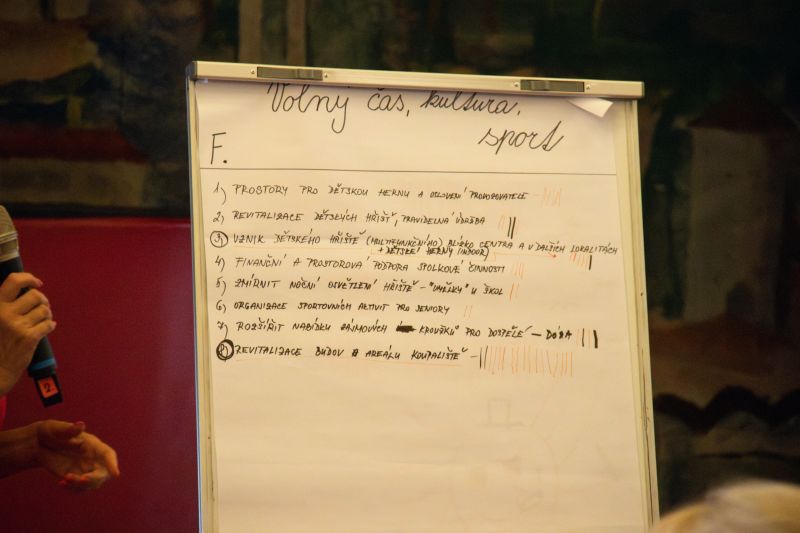 Volný čas, kultura,
sport
F.
1) PROSTORY PRO DĚTSKOU HERNU A OSLOVENÍ PROVOZOVATELE
2) REVITALIZACE DĚTSKÝCH HŘIŠŤ, PRAVIDELNÁ ÚDRŽBA
3) VZNIK DĚTSKÉHO HŘIŠTĚ (MULTIFUNKČNÍHO) BLÍZKO CENTRA A V DALŠÍCH LOKALITÁCH
+ DĚTSKÉ HERNY (INDOOR)
4) FINANČNÍ A PROSTOROVÁ PODPORA SPOLKOVÉ ČINNOSTI
5) ZMÍRNIT NOČNÍ OSVĚTLENÍ HŘIŠTĚ - "UMĚLKY" U ŠKOL
6) ORGANIZACE SPORTOVNÍCH AKTIVIT PRO SENIORY
7) ROZŠÍŘIT NABÍDKU ZÁJMOVÝCH KROUŽKŮ PRO DOSPĚLÉ - DÓZA
8) REVITALIZACE BUDOV A AREÁLU KOUPALIŠTĚ -
2